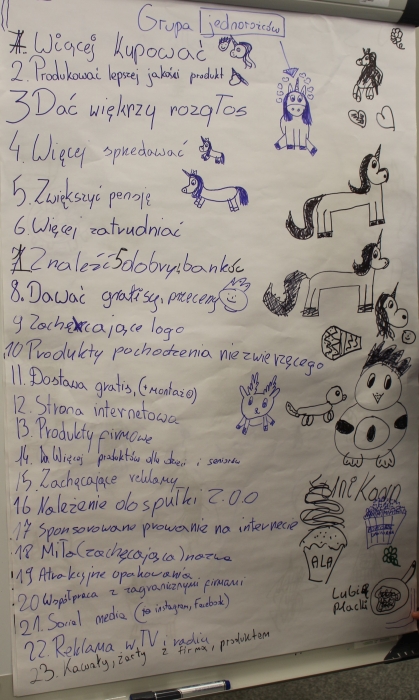 Grupa jednorożców
1. Więcej kupować
2. Produkować lepszej jakości produkt
3 Dać większy rozgłos
4. Więcej sprzedawać
5. Zwiększyć pensję
6. Więcej zatrudniać
7. Znaleźć 5 dobrych banków
8. Dawać gratisy, przeceny
9 Zachęcające logo
10 Produkty pochodzenia niezwierzęcego
11. Dostawa gratis, (+montaż)
12. Strona internetowa
13. Produkty firmowe
14. Więcej produktów dla dzieci i seniorów
15. Zachęcające reklamy
16 Należenie do spułki z.o.o
17 Sponsorowane prowanie na internecie
18 Miła (zachęcająca) nazwa
19 Atrakcyjne opakowania
20 Współpraca z zagranicznymi firmami
21. Social media (to instagram, facebook)
22. Reklama w TV i radiu
23. Kawały, żarty z firmą, produktem
ALA
Lubię
placki